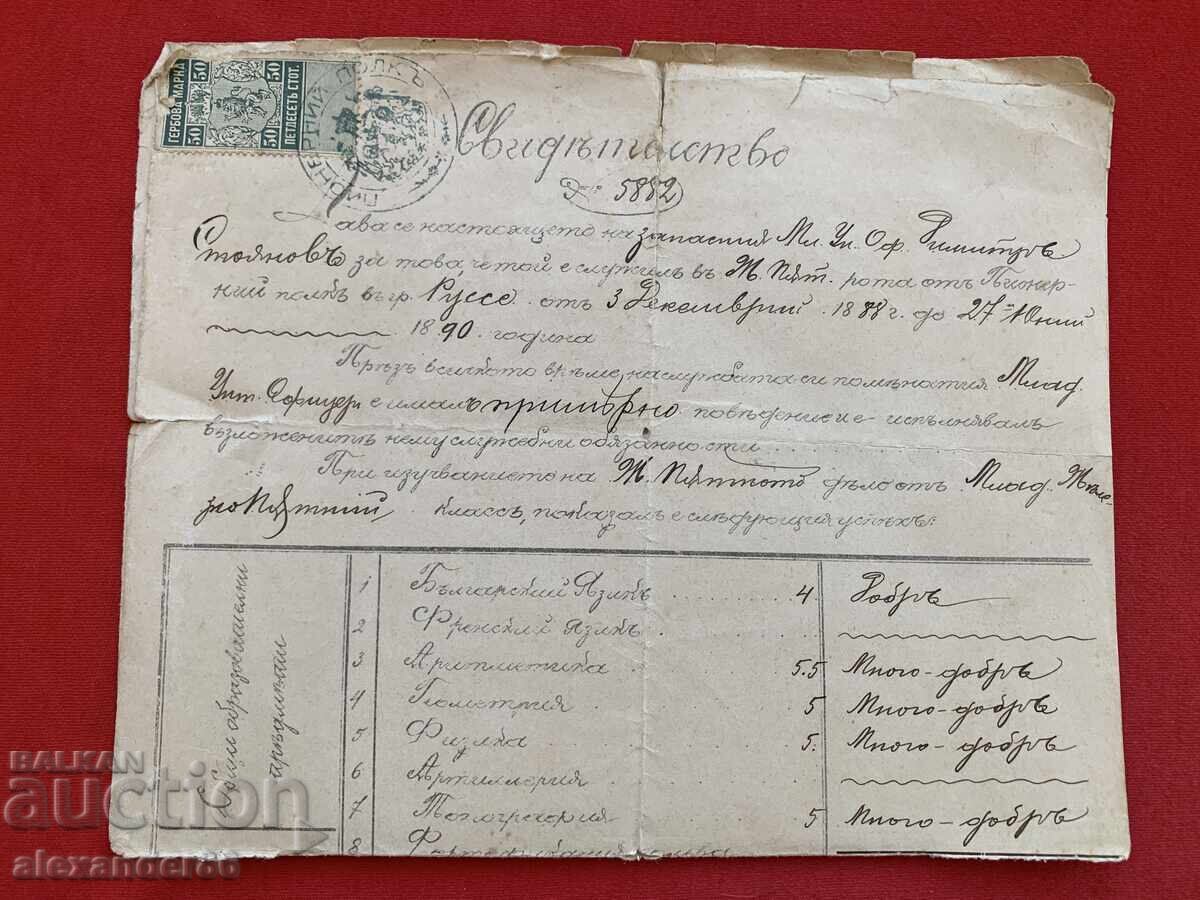 ГЕРБОВА МАРКА
50 50
50 50
ПЕТДЕСЕТЬ СТОТ.
ПИОНЕРНИЙ ПОЛКЪ
Свидѣтелство
№ 5882
Дава се настоящето на запасния Мл. Ун. Оф. Димитръ
Стояновъ за това, че той е служилъ въ Ж. Пѫт. рота отъ Пионер-
ний полкъ въ гр. Руссе отъ 3 Декемврий 1888 г. до 27 Юний
1890. година
Прѣзъ всичкото врѣме на службата си помѣнатия Млад.
Унт. Офицеръ е ималъ примѣрно поведение и е испълнявалъ
възложенитѣ нему служебни обязанности
При изучванието на Ж. Пѫтното дѣло отъ Млад. Желѣ-
зно Пѫтний классъ, показалъ е слѣдующия успѣхъ:
Общи образователни
прѣдмѣти
1 Българский Язикъ 4 Добръ
2 Френский Язикъ
3 Аритметика 5.5 Много-добръ
4 Геометрия 5 Много-добръ
5 Физика 5. Много-добръ
6 Артиллерия
7 Топография 5 Много-добръ
8
BALKAN
auction
alexander86